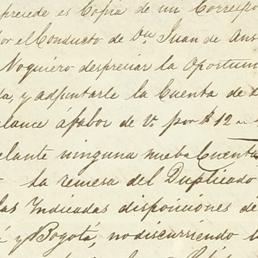 precede es Copia de un Correspo
por el Conducto de Dn. Juan de Ans
Noguiero despreciar la Oportun
da, y adjuntarle la Cuenta de
alance áfabor de V. por $12
elante ninguna nueba Cuenta
la remesa del Duplicado
las Indicadas disposiciones de
á y Bogotá, no discurriendo